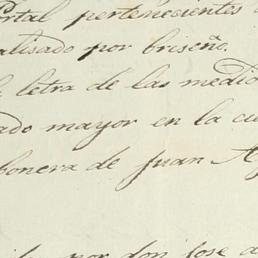 ortal pertenecientes
alisado por briseño.
letra de las medio
ado mayor en la cu
bonera de Juan A
por don Jose a